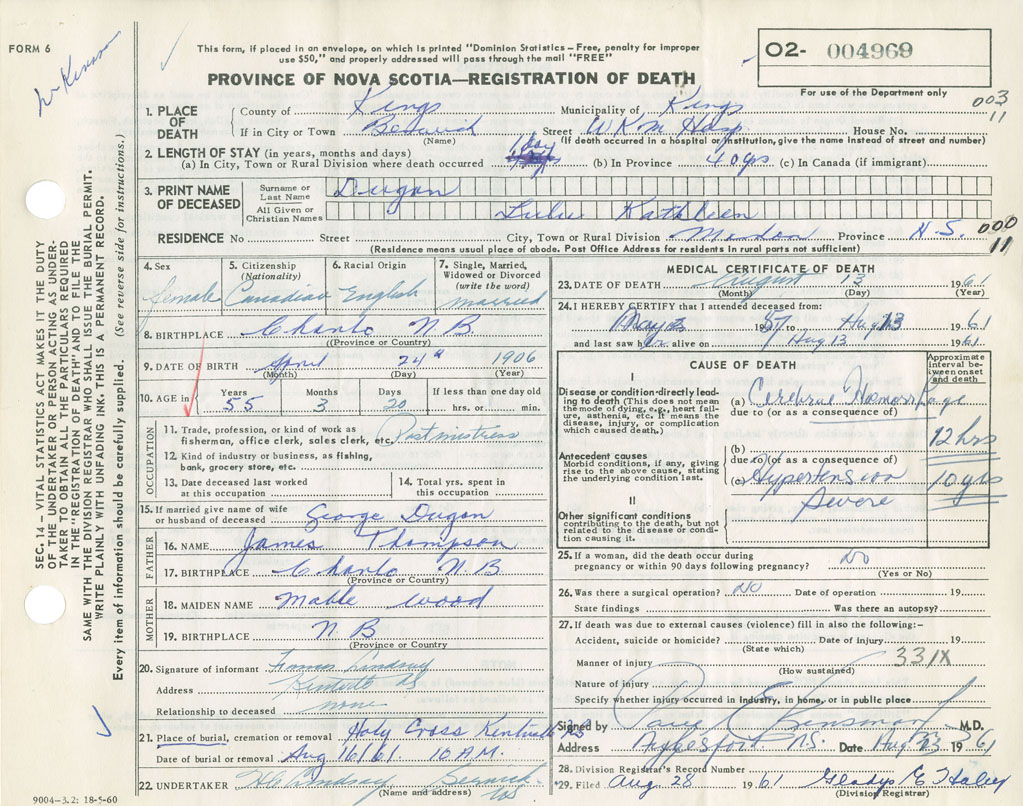 FORM 6
This form, if placed in an envelope, on which is printed "Dominion Statistics – Free, penalty for improper
use $50," and properly addressed will pass through the mail "FREE"
PROVINCE OF NOVA SCOTIA—REGISTRATION OF DEATH
O2- 004969
For use of the Department only
003
11
1. PLACE OF DEATH
County of Kings Municipality of Kings
If in City or Town Berwick Street W K M Hosp House No.
(Name) (If death occurred in a hospital or institution, give the name instead of street and number)
2. LENGTH OF STAY (in years, months and days)
(a) In City, Town or Rural Division where death occurred 1 day (b) In Province 40 yrs (c) In Canada (if immigrant)
3. PRINT NAME OF DECEASED
Surname or Last Name Dugan
All Given or Christian Names Lulu Kathleen
RESIDENCE No Street City, Town or Rural Division Province N.S.
000
11
(Residence means usual place of abode. Post Office Address for residents in rural parts not sufficient)
4. Sex female
5. Citizenship (Nationality) Canadian
6. Racial Origin English
7. Single, Married, Widowed or Divorced (write the word) married
8. BIRTHPLACE Charlo N.B.
(Province or Country)
9. DATE OF BIRTH April 24th 1906
(Month) (Day) (Year)
10. AGE in Years 55 Months 3 Days 20 If less than one day hrs. or min.
OCCUPATION
11. Trade, profession, or kind of work as fisherman, office clerk, sales clerk, etc. Postmistress
12. Kind of industry or business, as fishing, bank, grocery store, etc.
13. Date deceased last worked at this occupation
14. Total yrs. spent in this occupation
15. If married give name of wife or husband of deceased George Dugan
FATHER
16. NAME James Thompson
17. BIRTHPLACE Charlo N.B
(Province or Country)
MOTHER
18. MAIDEN NAME Mable Wood
19. BIRTHPLACE N.B
(Province or Country
20. Signature of informant Lindsay
Address
Relationship to deceased none
21. Place of burial, cremation or removal Holy Cross Kentville
Date of burial or removal Aug 16/61. 10 A.M.
22. UNDERTAKER Lindsay Berwick
(Name and address) NS
9004–3.2: 18-5-60
MEDICAL CERTIFICATE OF DEATH
23. DATE OF DEATH August 13 1961
(Month) (Day) (Year)
24. I HEREBY CERTIFY that I attended deceased from:
May 57 to Aug 13 1961
and last saw her alive on Aug 13 1961
CAUSE OF DEATH
Approximate interval between onset and death
I
Disease or condition directly leading to death (This does not mean the mode of dying, e.g., heart failure, asthenia, etc. It means the disease, injury, or complication which caused death.)
(a) Cerebral Hemorrhage
due to (or as a consequence of)
12 hrs
Antecedent causes
Morbid conditions, if any, giving rise to the above cause, stating the underlying condition last.
(b)
due to (or as a consequence of)
(c) Hypertension 10 yrs
Severe
II
Other significant conditions
contributing to the death, but not related to the disease or condition causing it.
25. If a woman, did the death occur during pregnancy or within 90 days following pregnancy? NO
(Yes or No)
26. Was there a surgical operation? NO Date of operation 19
State findings Was there an autopsy?
27. If death was due to external causes (violence) fill in also the following:-
Accident, suicide or homicide? Date of injury 19
(State which)
331X
Manner of injury
(How sustained)
Nature of injury
Specify whether injury occurred in industry, in home, or in public place
Signed by M.D.
Address Aylesford N.S. Date Aug 1961
28. Division Registrar's Record Number
*29. Filed Aug. 28 1961 Gladys E Haley
(Division Registrar)
SEC. 14 – VITAL STATISTICS ACT MAKES IT THE DUTY
OF THE UNDERTAKER OR PERSON ACTING AS UNDER-
TAKER TO OBTAIN ALL THE PARTICULARS REQUIRED
IN THE "REGISTRATION OF DEATH" AND TO FILE THE
SAME WITH THE DIVISION REGISTRAR WHO SHALL ISSUE THE BURIAL PERMIT.
WRITE PLAINLY WITH UNFADING INK. THIS IS A PERMANENT RECORD.
Every item of information should be carefully supplied. (See reverse side for instructions.)